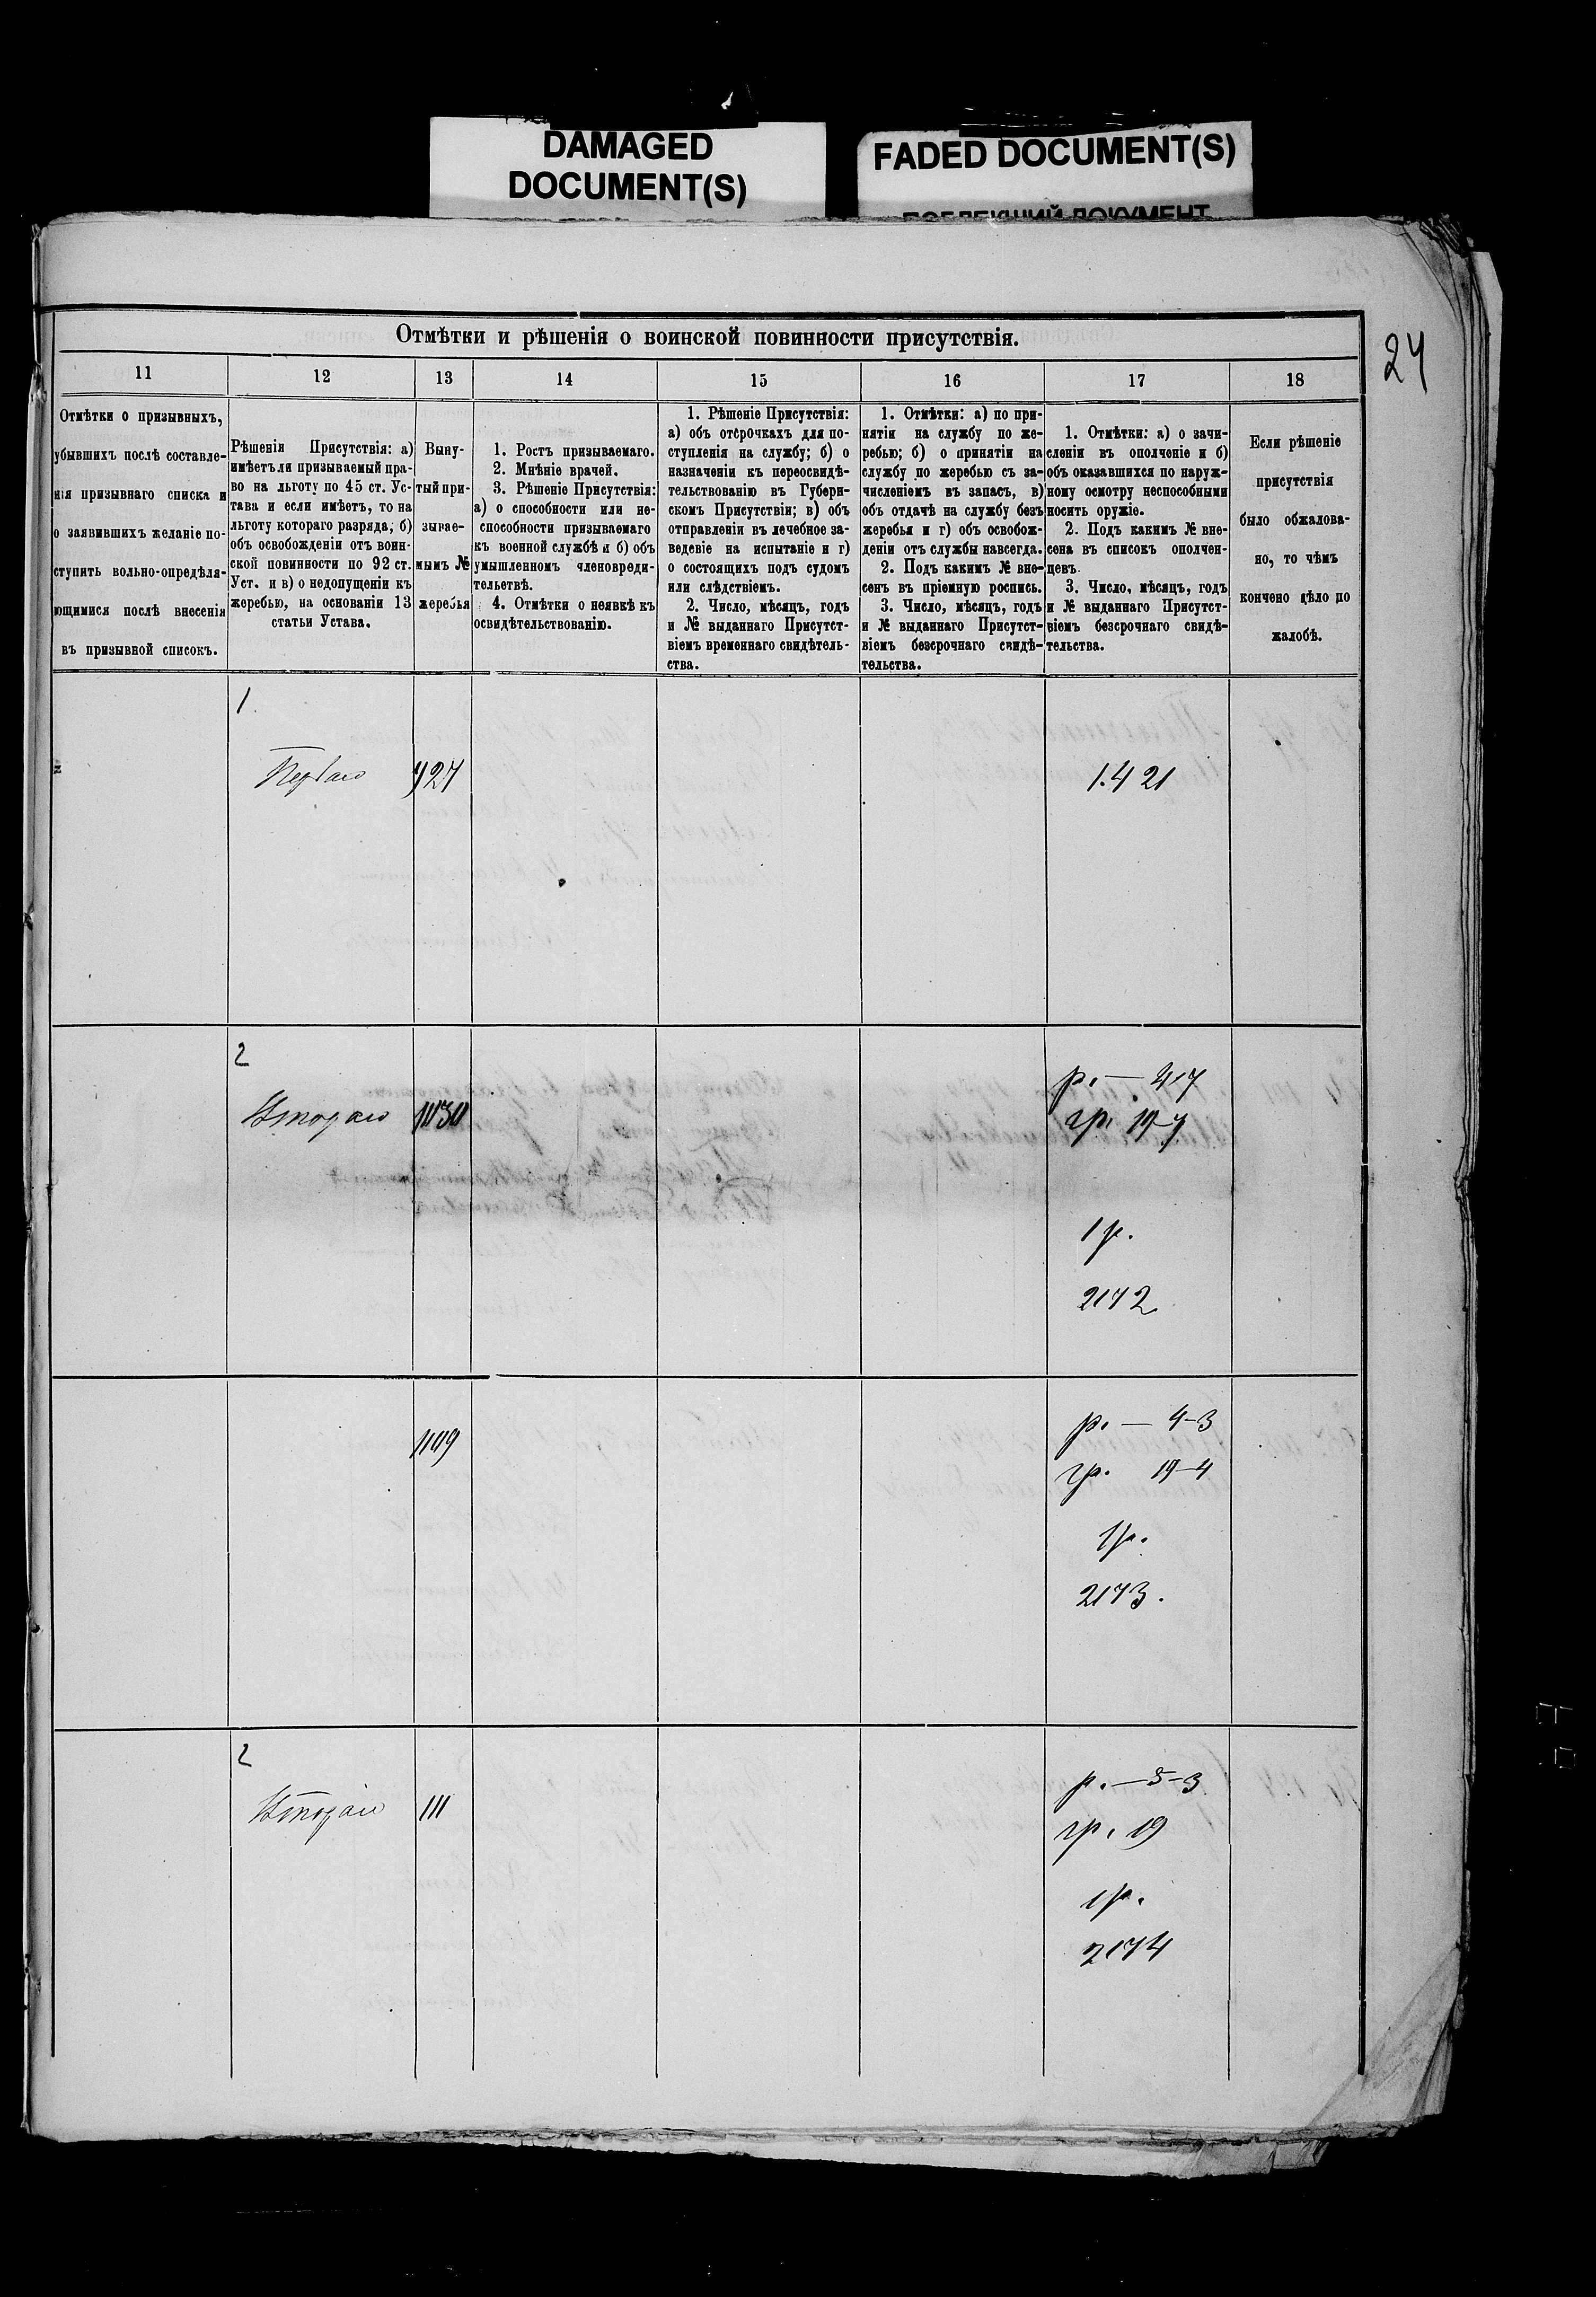 DAMAGED
DOCUMENT(S)
FADED DOCUMENT(S)
24
Отмѣтки и рѣшенія о воинской повинности присутствія.
11
12
13
14
15
16
17
18
Отмѣтки о призывныхъ,
убывшихъ послѣ составле-
нія призывнаго списка и
о заявившихъ желаніе по-
ступить вольно-опредѣля-
ющимися послѣ внесенія
въ призывной списокъ.
Рѣшенія Присутствія: а)
имѣетъ ли призываемый пра-
во на льготу по 45 ст. Ус-
тава и если имѣетъ, то на
льготу котораго разряда; б)
объ освобожденіи отъ воин-
ской повинности по 92 ст.
Уст. и в) о недопущеніи къ
жеребью, на основаніи 13
статьи Устава.
Выну-
тый при-
зывае-
мымъ №
жеребья
1. Ростъ призываемаго.
2. Мнѣніе врачей.
3. Рѣшеніе Присутствія:
а) о способности или не-
способности призываемаго
къ военной службѣ и б) объ
умышленномъ членовреди-
тельствѣ.
4. Отмѣтки о неявкѣ къ
освидѣтельствованію.
1. Рѣшеніе Присутствія:
а) объ отсрочкахъ для по-
ступленія на службу; б) о
назначеніи къ переосвидѣ-
тельствованію въ Губерн-
скомъ Присутствіи; в) объ
отправленіи въ лечебное за-
веденіе на испытаніе и г)
о состоящихъ подъ судомъ
или слѣдствіемъ.
2. Число, мѣсяцъ, годъ
и № выданнаго Присутст-
віемъ временнаго свидѣтель-
ства.
1. Отмѣтки: а) по при-
нятіи на службу по же-
ребью; б) о принятіи на
службу по жеребью съ за-
численіемъ въ запасъ, в)
объ отдачѣ на службу безъ
жеребья и г) объ освобож-
деніи отъ службы навсегда.
2. Подъ какимъ № вне-
сенъ въ пріемную роспись.
3. Число, мѣсяцъ, годъ
и № выданнаго Присутст-
віемъ безсрочнаго свидѣ-
тельства.
1. Отмѣтки: а) о зачи-
сленіи въ ополченіе и б)
объ оказавшихся по наруж-
ному осмотру неспособными
носить оружіе.
2. Подъ какимъ № вне-
сена въ списокъ ополчен-
цевъ.
3. Число, мѣсяцъ, годъ
и № выданнаго Присутст-
віемъ безсрочнаго свидѣ-
тельства.
Если рѣшеніе
присутствія
было обжалова-
но, то чѣмъ
кончено дѣло по
жалобѣ.
1
Перваго
927
1.421
2
Втораго
1030
р. — 4-7
гр. 19-7
1 р.
2172
1109
р. — 4-3
гр. 19-4
1 р.
2173.
2
Втораго
111
р. — 5-3
гр. 19
1 р.
2174